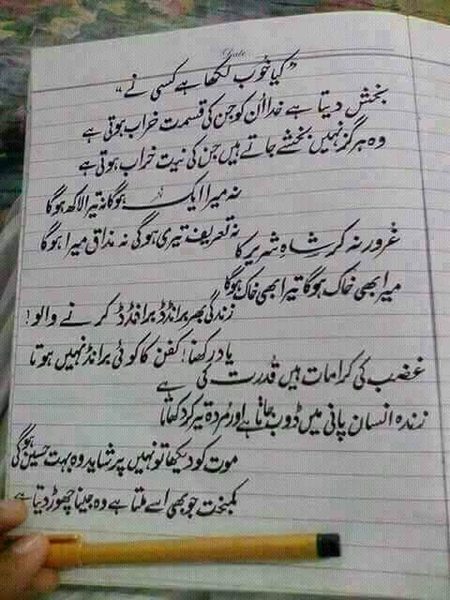 Date
"کیا خوب لکھا ہے کسی نے"
بخش دیتا ہے خدا اُن کو جن کی قسمت خراب ہوتی ہے
وہ ہرگز نہیں بخشے جاتے ہیں جن کی نیت خراب ہوتی ہے
نہ میرا ایک ہوگا نہ تیرا لاکھ ہوگا
نہ تعریف تیری ہوگی نہ مذاق میرا ہوگا
غرور نہ کر شاہِ شریر کا
میرا بھی خاک ہوگا تیرا بھی خاک ہوگا
زندگی بھر برانڈڈ برانڈڈ کرنے والو!
یاد رکھنا! کفن کا کوئی برانڈ نہیں ہوتا
غضب کی کرامات ہیں قُدرت کی
زندہ انسان پانی میں ڈوب جاتا ہے اور مُردہ تیر کر دکھاتا ہے
موت کو دیکھا تو نہیں پر شاید وہ بہت حسین ہوگی
کمبخت جو بھی اسے ملتا ہے وہ جینا چھوڑ دیتا ہے